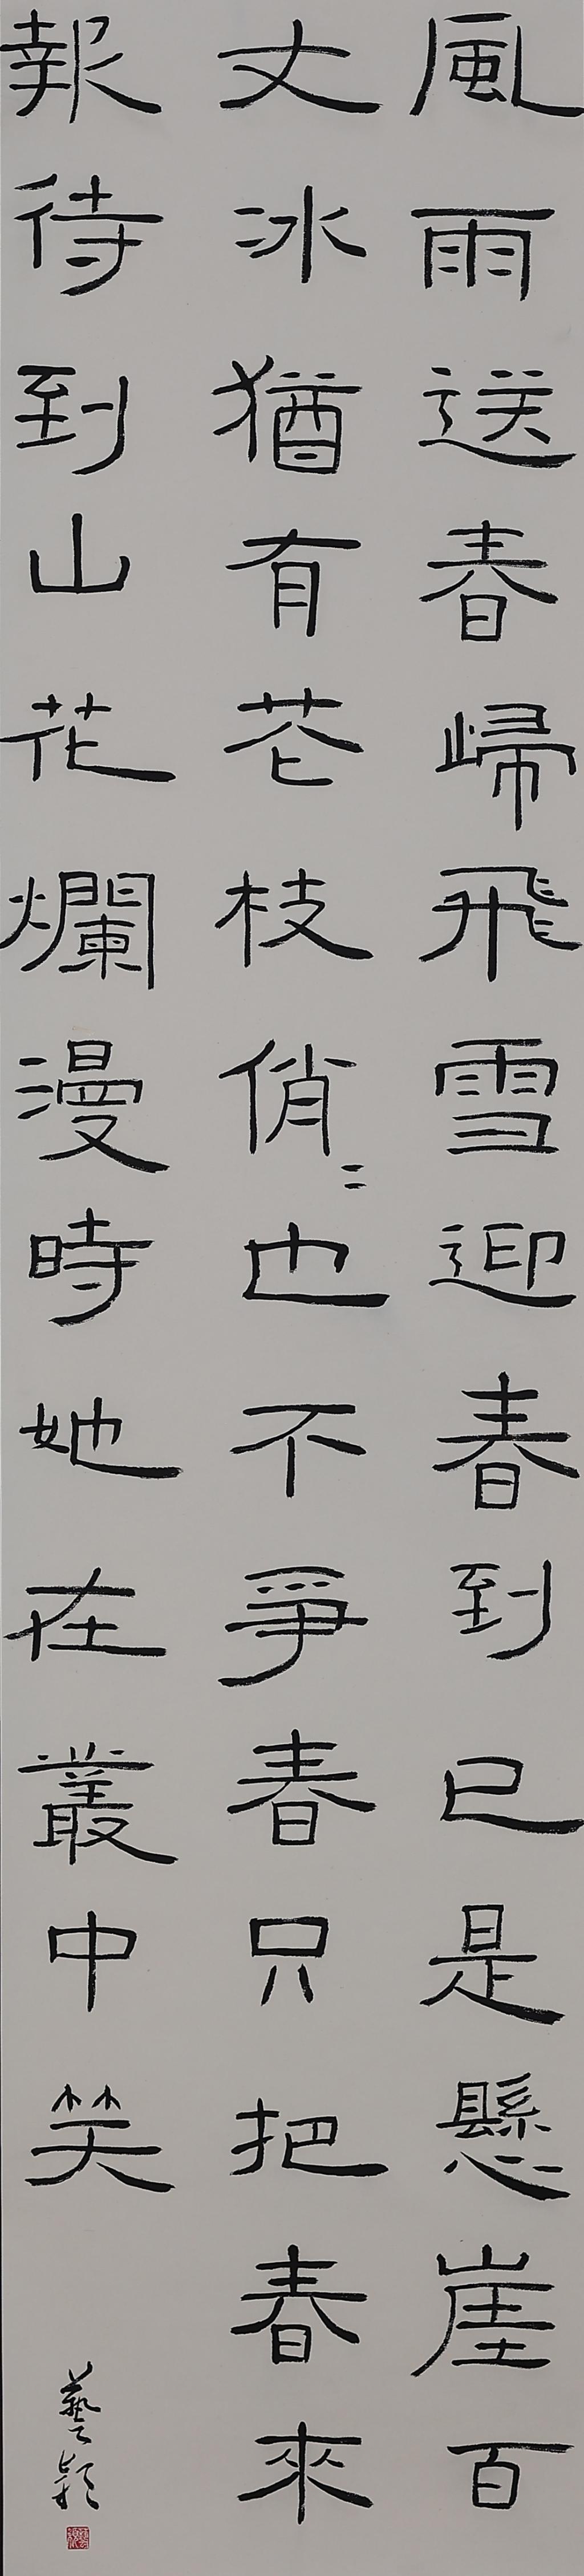 風雨送春歸飛雪迎春到已是懸崖百
丈冰猶有花枝俏〻也不爭春只把春來
報待到山花爛漫時她在叢中笑
藝穎